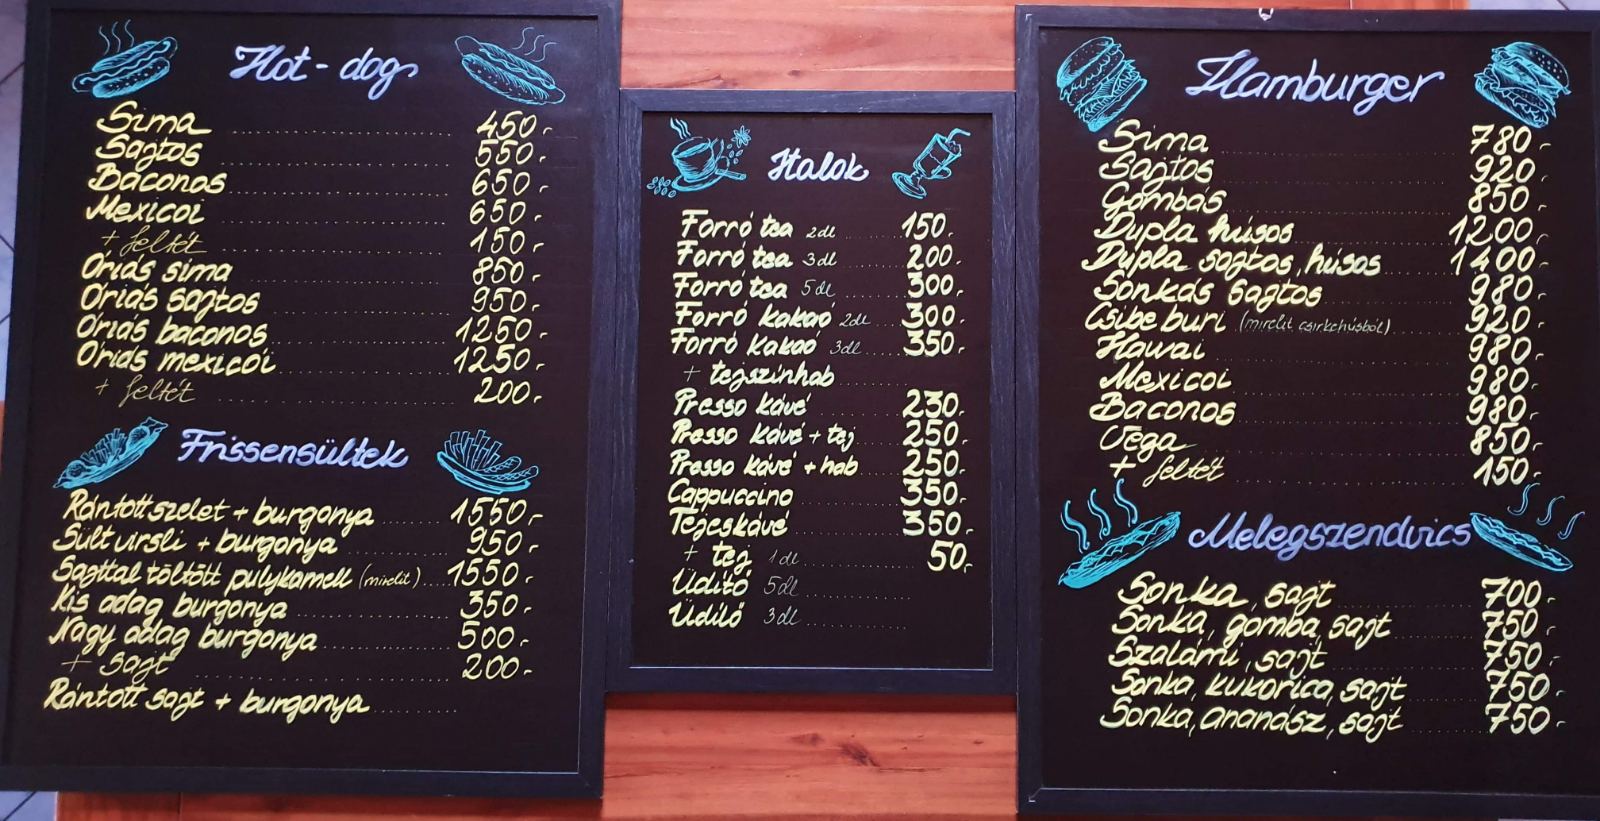 Hot-dog
Sima 450.-
Sajtos 550.-
Baconos 650.-
Mexicoi 650.-
+ feltét 150.-
Óriás sima 850.-
Óriás sajtos 950.-
Óriás baconos 1250.-
Óriás mexicói 1250.-
+ feltét 200.-
Frissensültek
Rántott szelet + burgonya 1550.-
Sült virsli + burgonya 950.-
Sajttal töltött pulykamell (mirelit) 1550.-
Kis adag burgonya 350.-
Nagy adag burgonya 500.-
+ sajt 200.-
Rántott sajt + burgonya
Italok
Forró tea 2dl 150.-
Forró tea 3dl 200.-
Forró tea 5dl 300.-
Forró kakaó 2dl 300.-
Forró kakaó 3dl 350.-
+ tejszínhab
Presso kávé 230.-
Presso kávé + tej 250.-
Presso kávé + hab 250.-
Cappuccino 350.-
Tejeskávé 350.-
+ tej 1dl 50.-
Üdítő 5dl
Üdítő 3dl
Hamburger
Sima 780.-
Sajtos 920.-
Gombás 850.-
Dupla húsos 1200.-
Dupla sajtos, húsos 1400.-
Sonkás sajtos 980.-
Csibe buri (mirelit csirkehúsból) 920.-
Hawai 980.-
Mexicoi 980.-
Baconos 980.-
Vega 850.-
+ feltét 150.-
Melegszendvics
Sonka, sajt 700.-
Sonka, gomba, sajt 750.-
Szalámi, sajt 750.-
Sonka, kukorica, sajt 750.-
Sonka, ananász, sajt 750.-